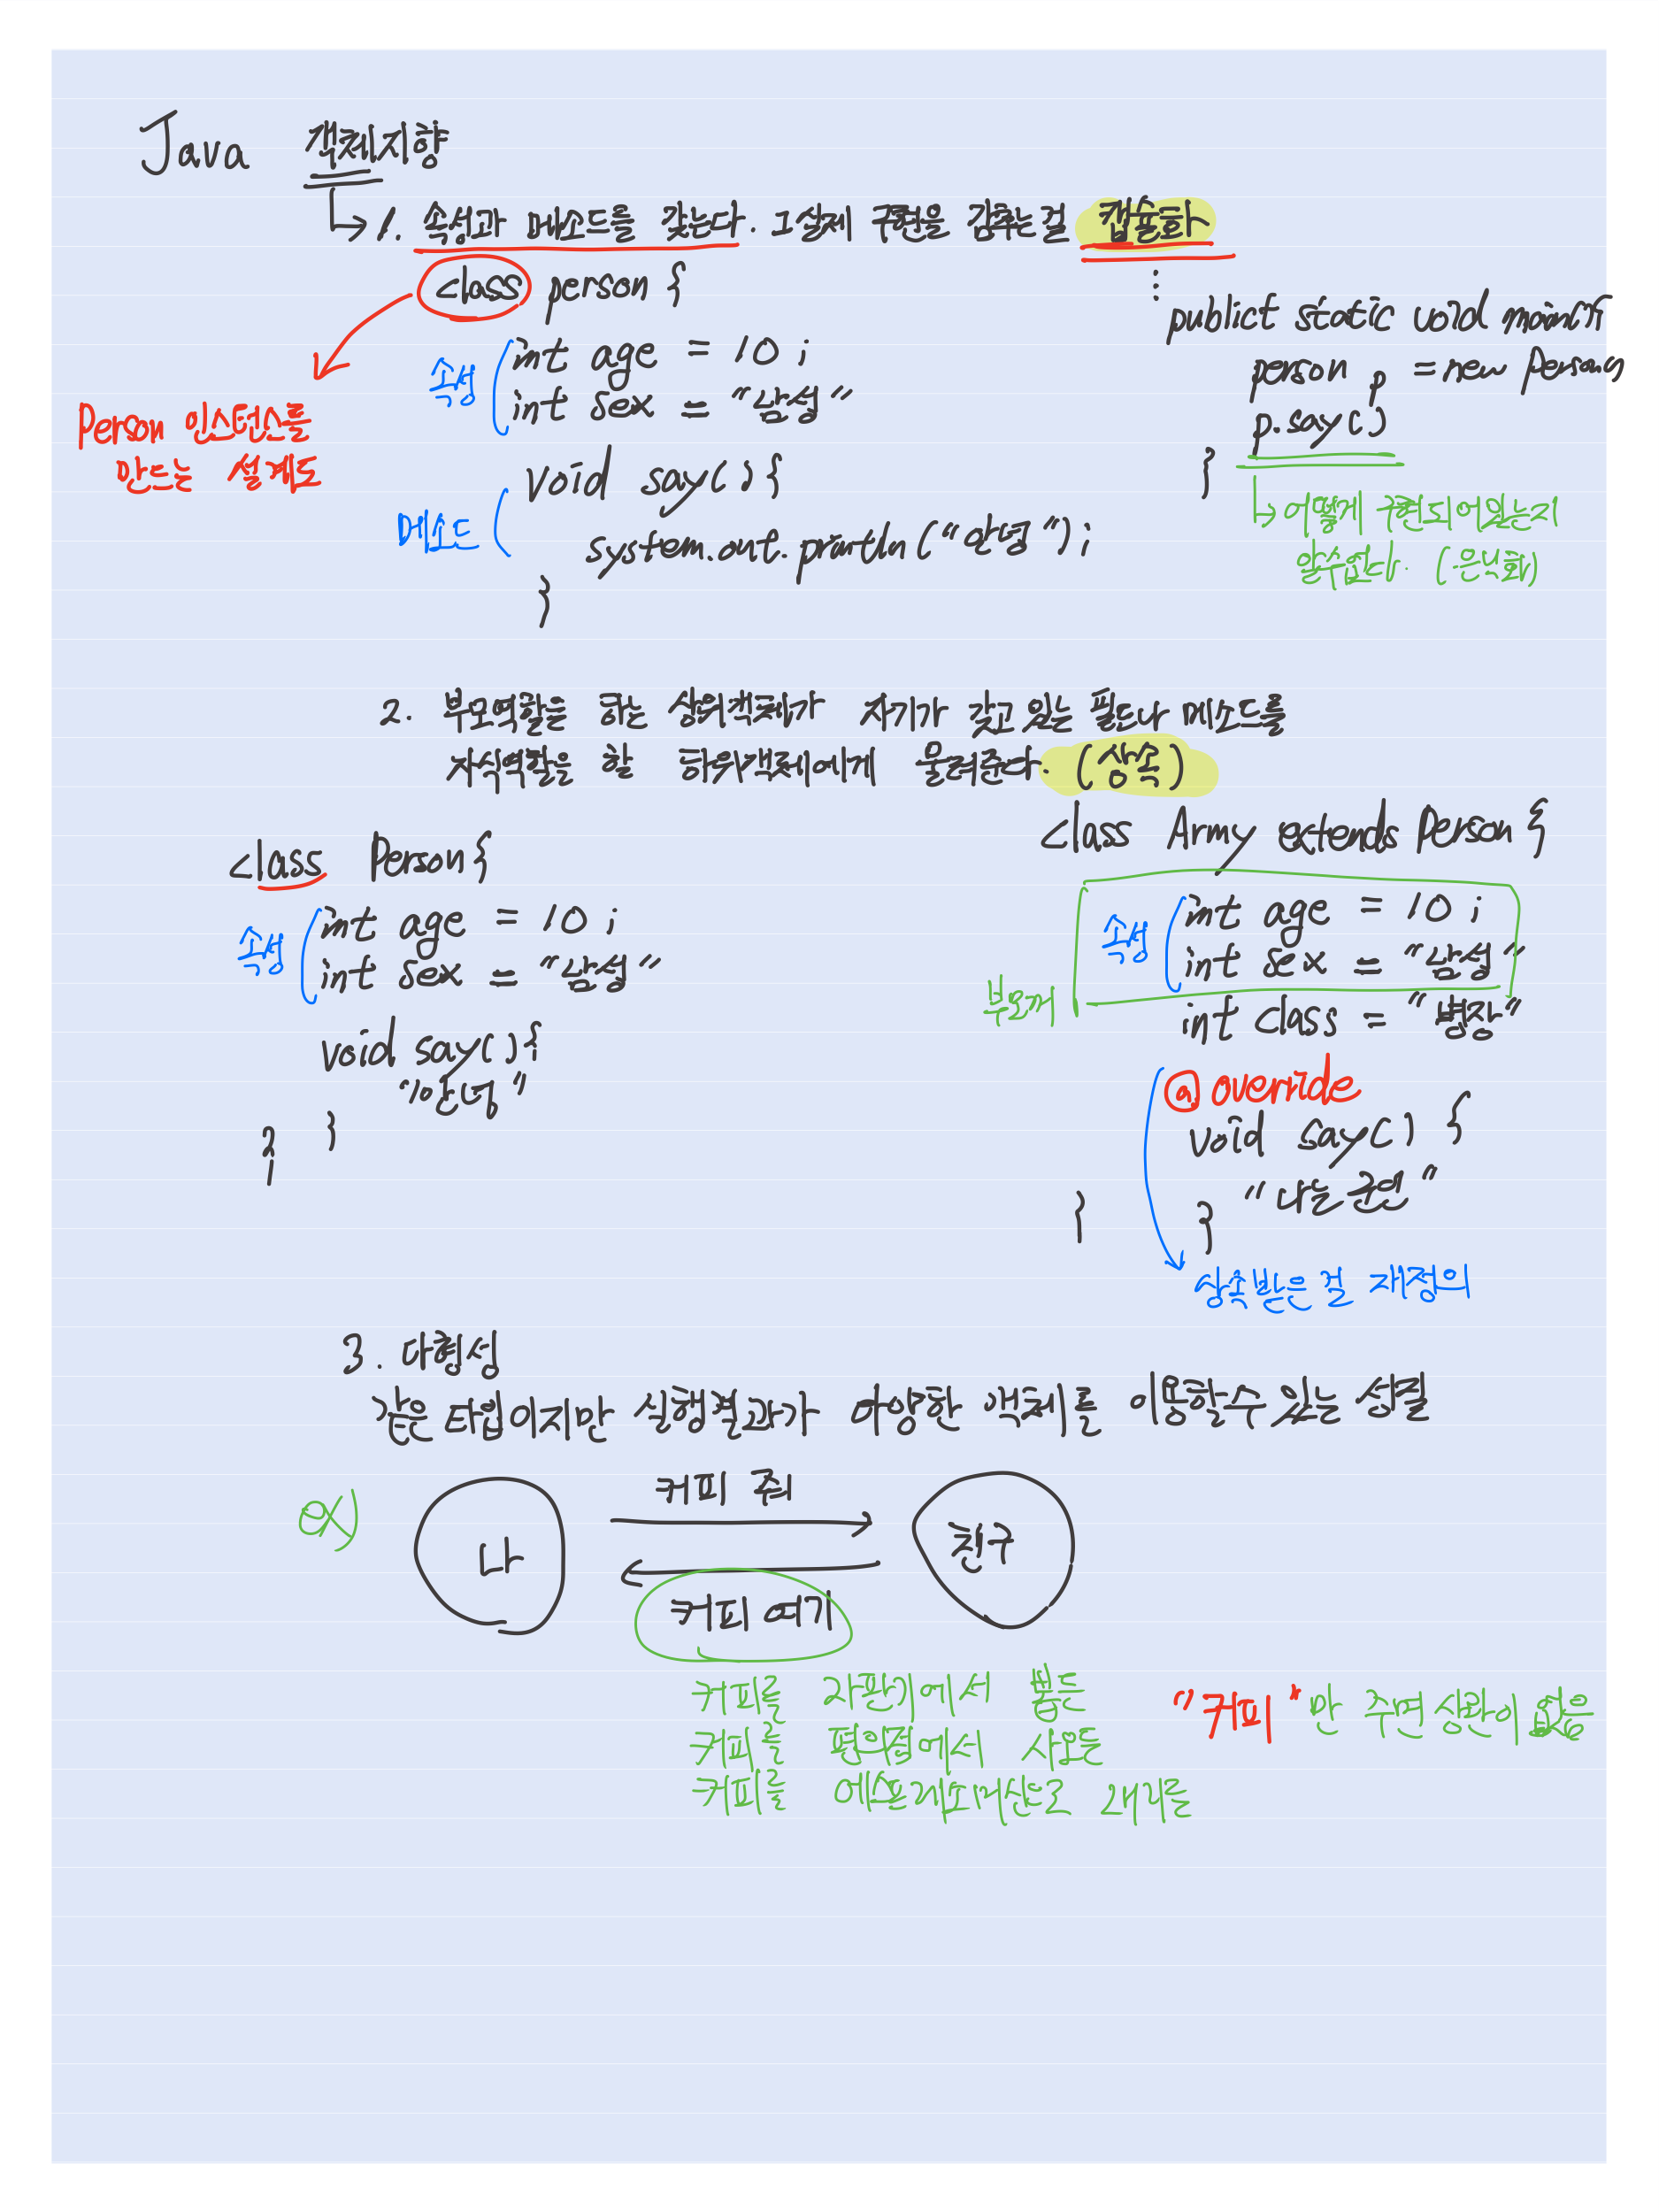 Java 객체지향
↳ 1. 속성과 메소드를 갖는다. 그 실제 구현을 감추는걸 캡슐화
class person {
속성
int age = 10 ;
int sex = "남성"
메소드
void say() {
system.out.println("안녕");
}
Person 인스턴스를
만드는 설계도
⋮
publict static void main() {
person p = new Person()
p.say()
}
↳ 어떻게 구현되어있는지
알수없다. (은닉화)
2. 부모역할을 하는 상위객체가 자기가 갖고 있는 필드나 메소드를
자식역할을 할 하위객체에게 물려준다. (상속)
class Person {
속성
int age = 10 ;
int sex = "남성"
void say() {
"안녕"
}
}
class Army extends Person {
부모께
속성
int age = 10 ;
int sex = "남성"
int class = "병장"
@override
void say() {
"나는 군인"
}
}
상속받은 걸 재정의
3. 다형성
같은 타입이지만 실행결과가 다양한 객체를 이용할수 있는 성질
ex)
나
커피 줘
친구
커피 여기
커피를 자판기에서 뽑든
커피를 편의점에서 사오든
커피를 에스프레소머신으로 내리든
"커피"만 주면 상관이 없음